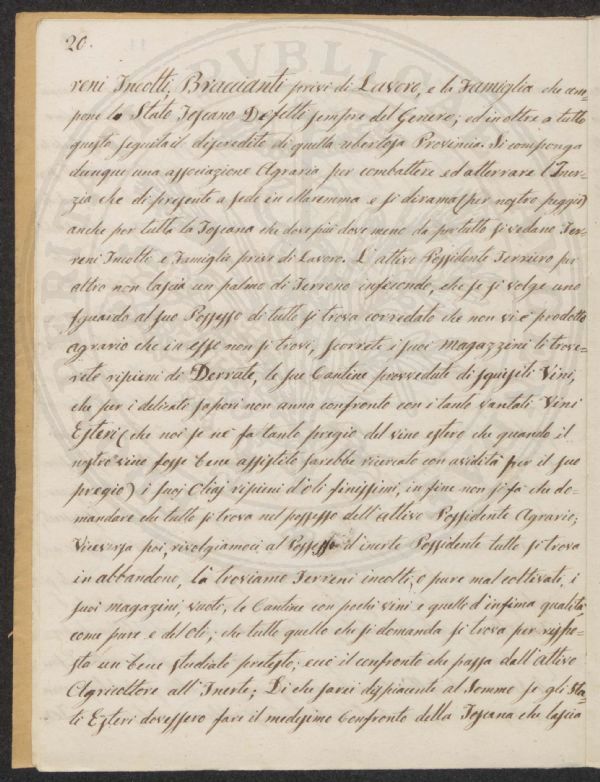 20.
reni Incolti, Braccianti privi di Lavoro, e la Famiglia che com=
pone lo Stato Toscano Defetti sempre del Genere; ed inoltre a tutto
questo seguita il discredito di quella ubertosa Provincia. Si componga
dunque una associazione Agraria per combattere ed atterrare l'Iner=
zia che di presente a sede in Maremma e si dirama (per nostro peggio)
anche per tutta la Toscana che dove più dove meno da per tutto si vedano Ter=
reni Incolti e Famiglie prive di Lavoro. L'attivo Possidente Terriero per
altro non lascia un palmo di Terreno infecondo, che se si volge uno
sguardo al suo Possesso di tutto si trova corredato che non vi è prodotto
agrario che in esso non si trovi, scorrete i suoi magazzini le trove=
rete ripieni di Derrate, le sue Cantine provvedute di squisiti Vini,
che per i delicati sapori non anna confronto con i tanto vantati Vini
Esteri (che noi se ne fa tanto pregio del vino estero che quando il
nostro vino fosse bene assistito sarebbe ricercato con avidità per il suo
pregio) i suoi Oliaj ripieni d'oli finissimi, in fine non si fa che do=
mandare che tutto si trova nel possesso dell'attivo Possidente Agrario;
Viceversa poi, rivolgiamoci al Possesso d'inerte Possidente tutto si trova
in abbandono, là troviamo Terreni incolti, o pure mal coltivati, i
suoi magazini, vuoti, le Cantine con pochi vini e quelli d'infima qualità
come pure e del Oli; che tutto quello che si domanda si trova per rispo=
sta un bene studiato pretesto; ecco il confronto che passa dall'attivo
Agricoltore all'Inerte; Di che sarei dispiacente al Sommo se gli Sta=
ti Esteri dovessero fare il medesimo Confronto della Toscana che lascia